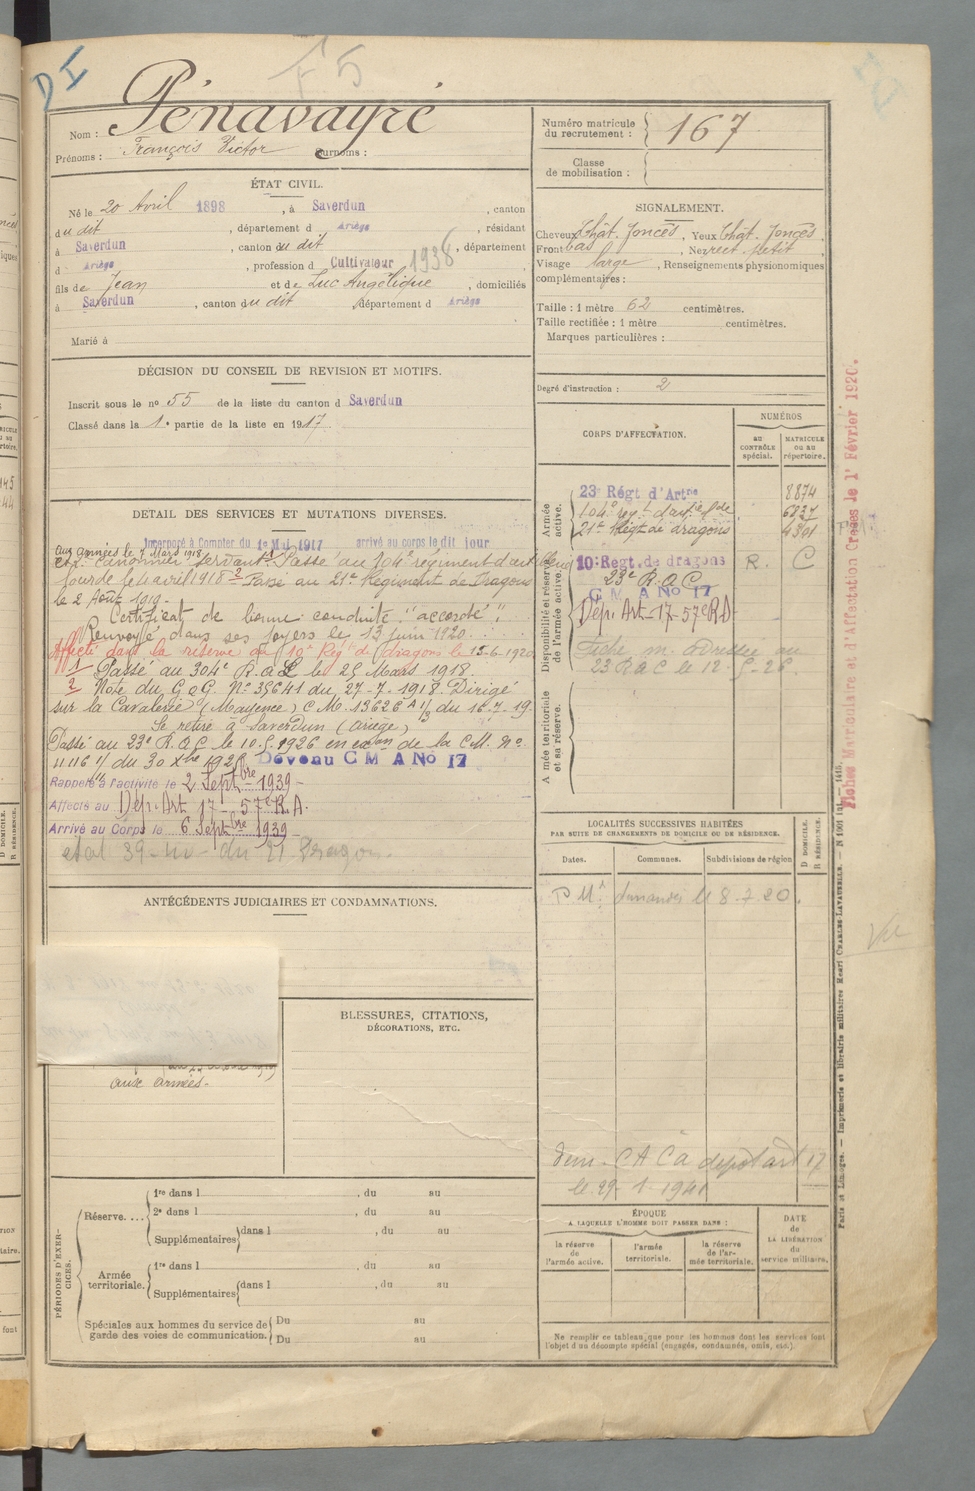 DI
F 5
Nom : Pénavayré
Prénoms : François Victor Surnoms :
Numéro matricule du recrutement : 167
Classe de mobilisation :
ÉTAT CIVIL.
Né le 20 Avril 1898, à Saverdun, canton
du dit, département d Ariège, résidant
à Saverdun, canton du dit, département
d Ariège, profession d Cultivateur 1938
fils de Jean et de Luc Angélique, domiciliés
à Saverdun, canton du dit, département d Ariège
Marié à
SIGNALEMENT.
Cheveux Chât. foncés, Yeux Chât. foncés,
Front bas, Nez rect. petit,
Visage large, Renseignements physionomiques
complémentaires :
Taille : 1 mètre 62 centimètres.
Taille rectifiée : 1 mètre centimètres.
Marques particulières :
Degré d'instruction : 2
DÉCISION DU CONSEIL DE REVISION ET MOTIFS.
Inscrit sous le nº 55 de la liste du canton d Saverdun
Classé dans la 1e partie de la liste en 1917.
DETAIL DES SERVICES ET MUTATIONS DIVERSES.
Incorporé à Compter du 1er Mai 1917 arrivé au corps le dit jour
aux armées le 7 Mars 1918
et 2e Canonnier servant. Passé au 104e régiment d'art
lourde le 4 avril 1918 2 Passé au 21e Régiment de Dragons
le 2 Août 1919.
Certificat de bonne conduite "accordé"
Renvoyé dans ses foyers le 13 juin 1920.
Affecté dans la réserve au 10e Rég. de dragons le 15-6-1920
1 Passé au 304e R.a.L le 25 Mars 1918.
2 Note du G.Q.G. Nº 35641 du 27-7-1918. Dirigé
sur la Cavalerie (Mayence) C.M. 13626 A 1/3 du 16-7-19.
Se retire à Saverdun (Ariège)
Passé au 23e R.A.C. le 10.5.1926 en exon de la C.M. Nº
11116 1/11 du 30 Xbre 1925 Devenu C M A Nº 17
Rappelé à l'activité le 2 Septbre 1939-
Affecté au Dép. Art 17 - 57e R.A.
Arrivé au Corps le 6 Septbre 1939-
etat 39-40 du 21 Dragon.
CORPS D'AFFECTATION.
NUMÉROS
au CONTRÔLE spécial.
MATRICULE ou au répertoire.
Armée active.
23e Régt d'Artrie 8874
104e régt d'artie lde 6827
21e Régt de dragons 4301
Disponibilité et réserve de l'armée active.
10e Regt. de dragons R. C
23e R.A.C
C M A Nº 17
Dép. Art-17-57e RA
Fiche m. adressée au
23 RAC le 12-5-26
Armée territoriale et sa réserve.
ANTÉCÉDENTS JUDICIAIRES ET CONDAMNATIONS.
aux armées-
BLESSURES, CITATIONS,
DÉCORATIONS, ETC.
LOCALITÉS SUCCESSIVES HABITÉES
PAR SUITE DE CHANGEMENTS DE DOMICILE OU DE RÉSIDENCE.
Dates. Communes. Subdivisions de région
D DOMICILE.
R RÉSIDENCE.
demandés le 8-7-20.
C A C à dépôt art 17
le 29-1-1941
PÉRIODES D'EXERCICES.
Réserve....
1re dans l , du au
2e dans l , du au
Supplémentaires dans l , du au
Armée territoriale.
1re dans l , du au
Supplémentaires dans l , du au
Spéciales aux hommes du service de garde des voies de communication.
Du au
Du au
ÉPOQUE
A LAQUELLE L'HOMME DOIT PASSER DANS :
la réserve de l'armée active.
l'armée territoriale.
la réserve de l'armée territoriale.
DATE de LA LIBÉRATION du service militaire.
Ne remplir ce tableau que pour les hommes dont les services font
l'objet d'un décompte spécial (engagés, condamnés, omis, etc.).
Fiches Matriculaire et d'Affectation Créées le 1er Février 1920.
Vu
Paris et Limoges. — Imprimerie et librairie militaires Henri CHARLES-LAVAUZELLE.